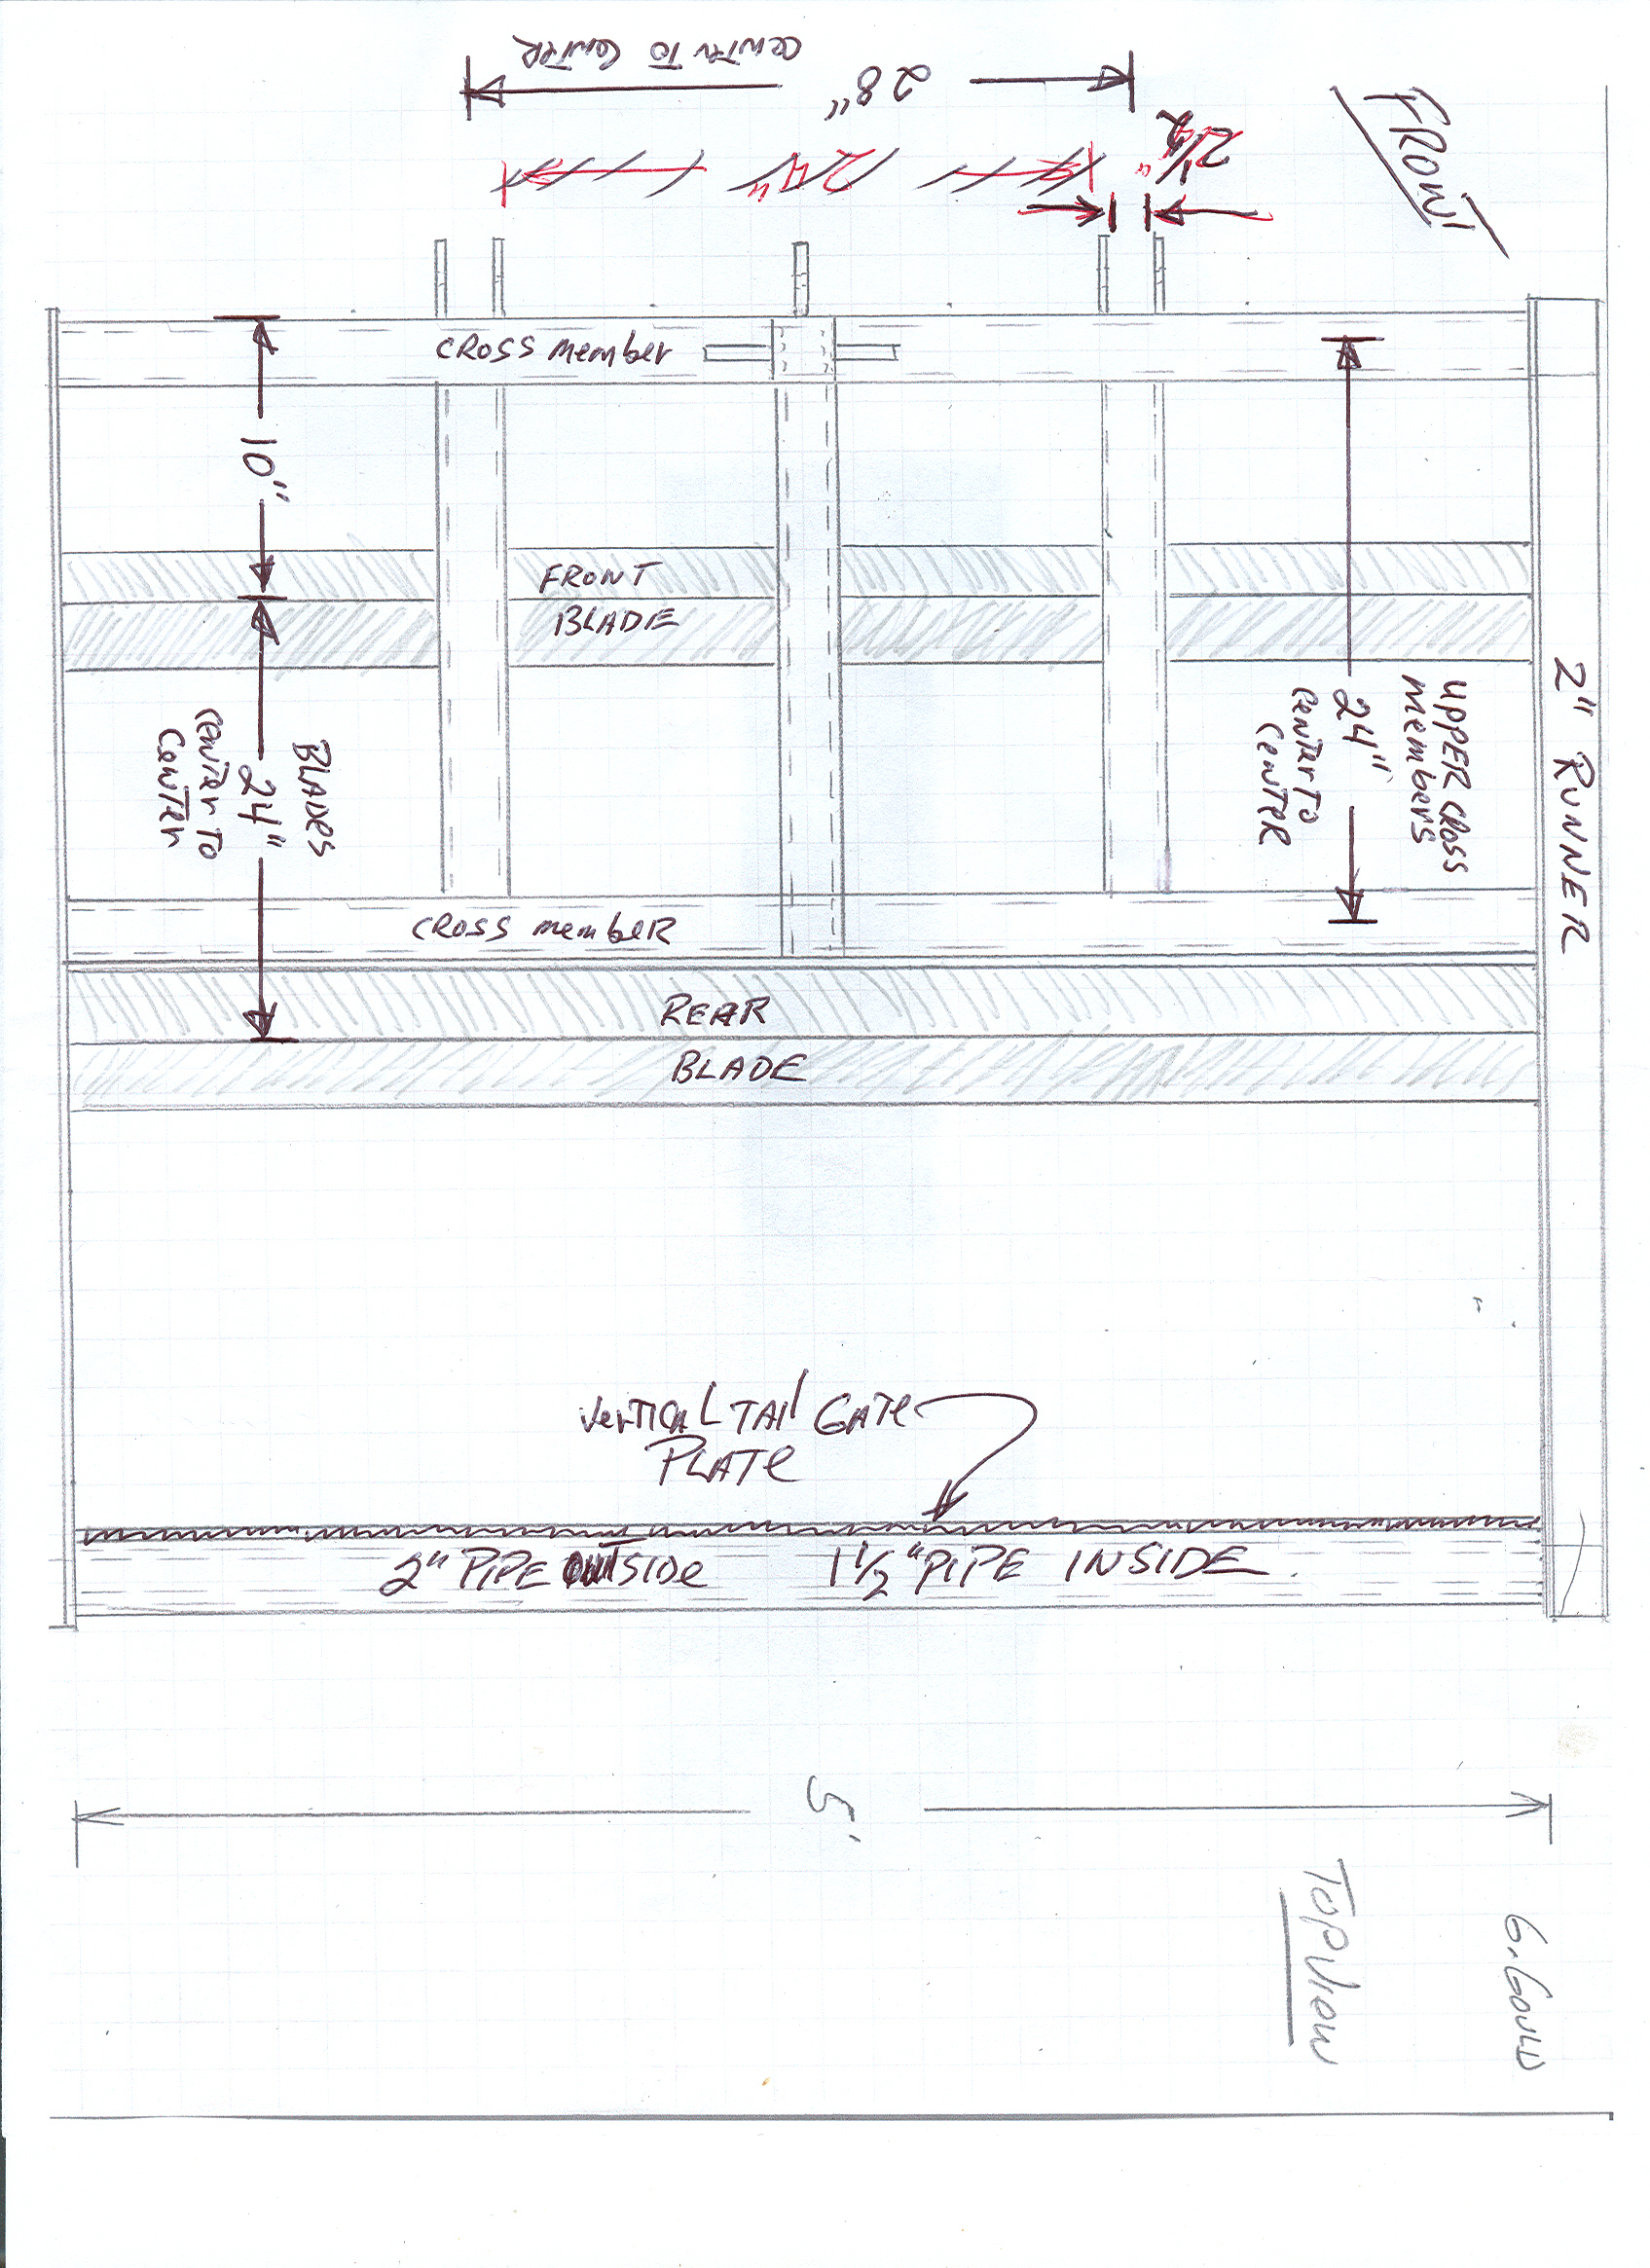 CENTER TO CENTER
28"
24"
2 1/2"
FRONT
CROSS member
10"
FRONT
BLADE
UPPER CROSS
members
24"
CENTER TO
CENTER
2" RUNNER
BLADES
24"
CENTER TO
CENTER
CROSS membeR
REAR
BLADE
VerTICAL TAIl GATe
PLATe
2" PIPE OUTSIDe
1 1/2" PIPE INSIDE
5'
TOP VIew
G. GOULD